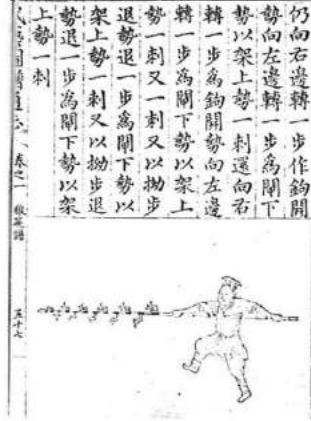 仍向右邊轉一步作鉤開
勢向左邊轉一步爲閘下
勢以架上勢一刺還向右
轉一步爲鉤開勢向左邊
轉一步爲閘下勢以架上
勢一刺又一刺又以拗步
退勢退一步爲閘下勢以
架上勢一刺又以拗步退
勢退一步爲閘下勢以架
上勢一刺
武藝圖譜通志 卷之一 狼筅譜 五十七